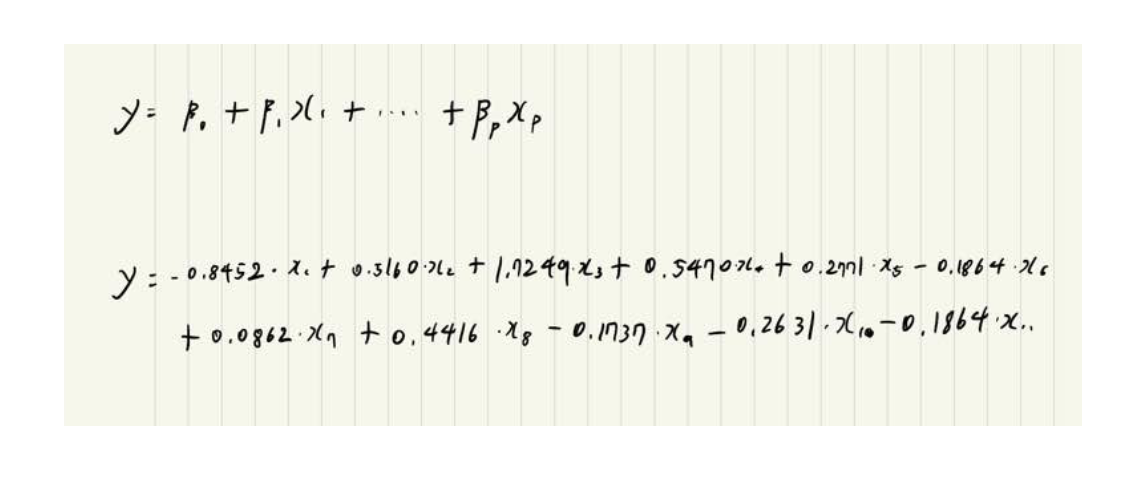 y = β₀ + β₁x₁ + .... + βₚxₚ
y = -0.8452·x₁ + 0.5160·x₂ + 1.7249·x₃ + 0.5470·x₄ + 0.2771·x₅ - 0.1864·x₆
+ 0.0862·x₇ + 0.4416·x₈ - 0.1737·x₉ - 0.2631·x₁₀ - 0.1864·x₁₁